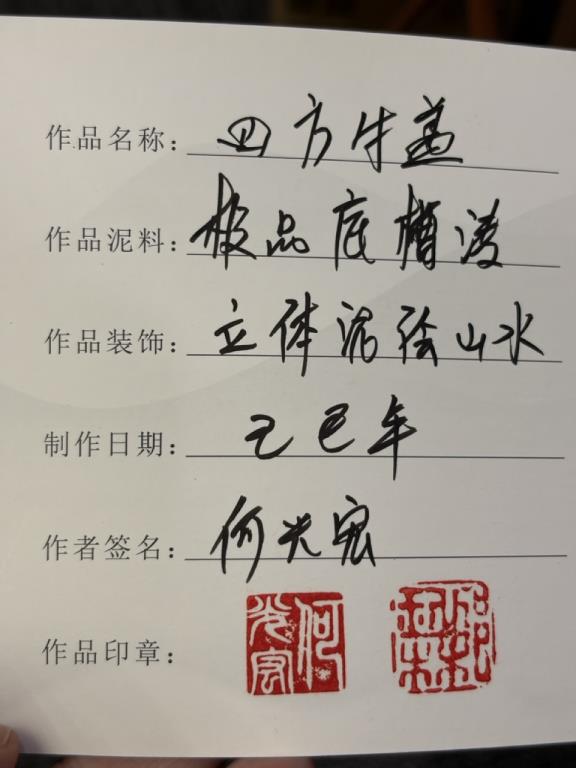 作品名称：四方牛盖
作品泥料：极品底槽清
作品装饰：立体泥绘山水
制作日期：乙巳年
作者签名：何光宏
作品印章：何光宏